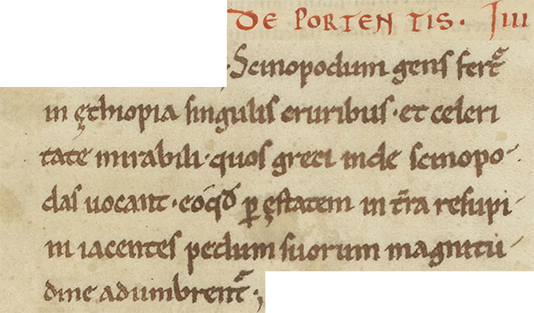 DE PORTENTIS. IIII
Scinopodum gens fert᷑
in ęthiopia singulis cruribus · et celeri
tate mirabili · quos greci inde scinopo-
das uocant · eo qđ ꝑ ęstatem in t̄ra resupi-
ni iacentes pedum suorum magnitu-
dine adumbrent᷑ ;